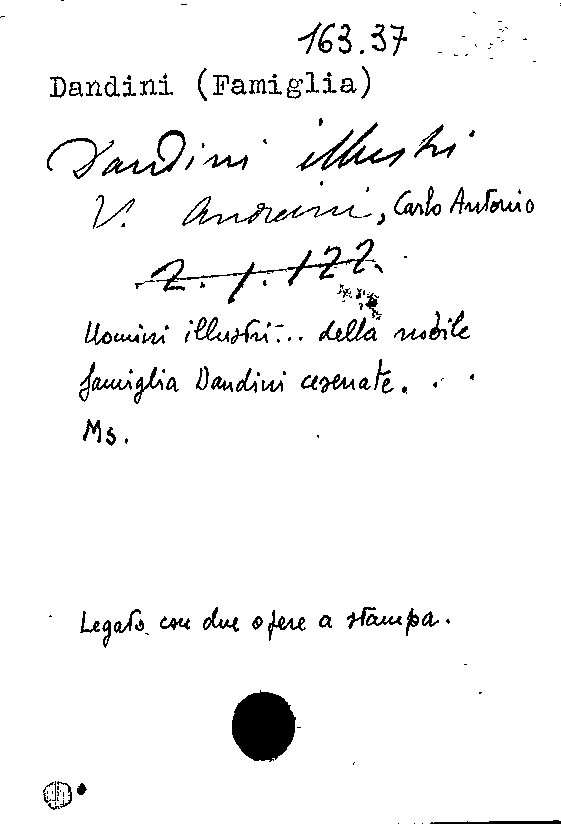 163.37
Dandini (Famiglia)
Dandini illustri
V. Andreini, Carlo Antonio
2.1.122.
Uomini illustri... della nobile
famiglia Dandini cesenate. . .
Ms.
Legato con due opere a stampa.